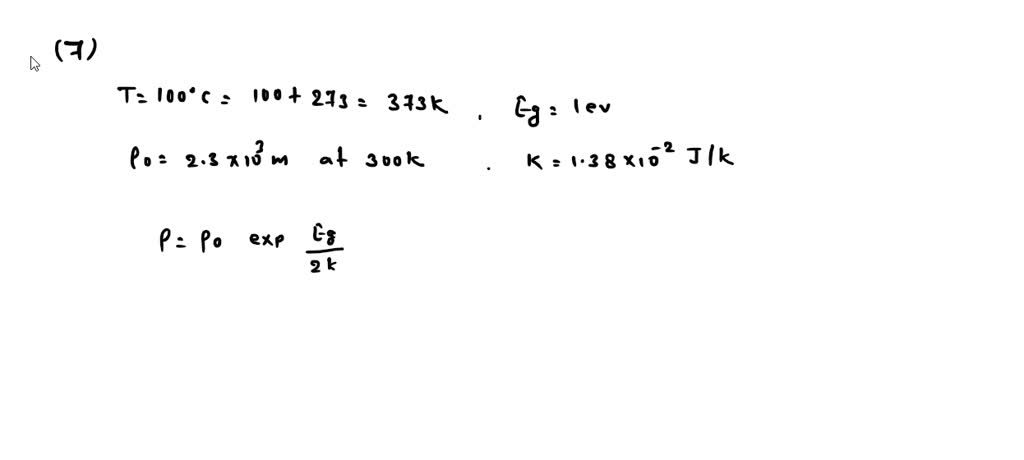 (7)
T= 100°C = 100 + 273 = 373K . Eg = 1 ev
ρ0 = 2.3 x 10^3 m at 300k . K = 1.38 x 10^-2 J/k
ρ = ρ0 exp Eg / 2k